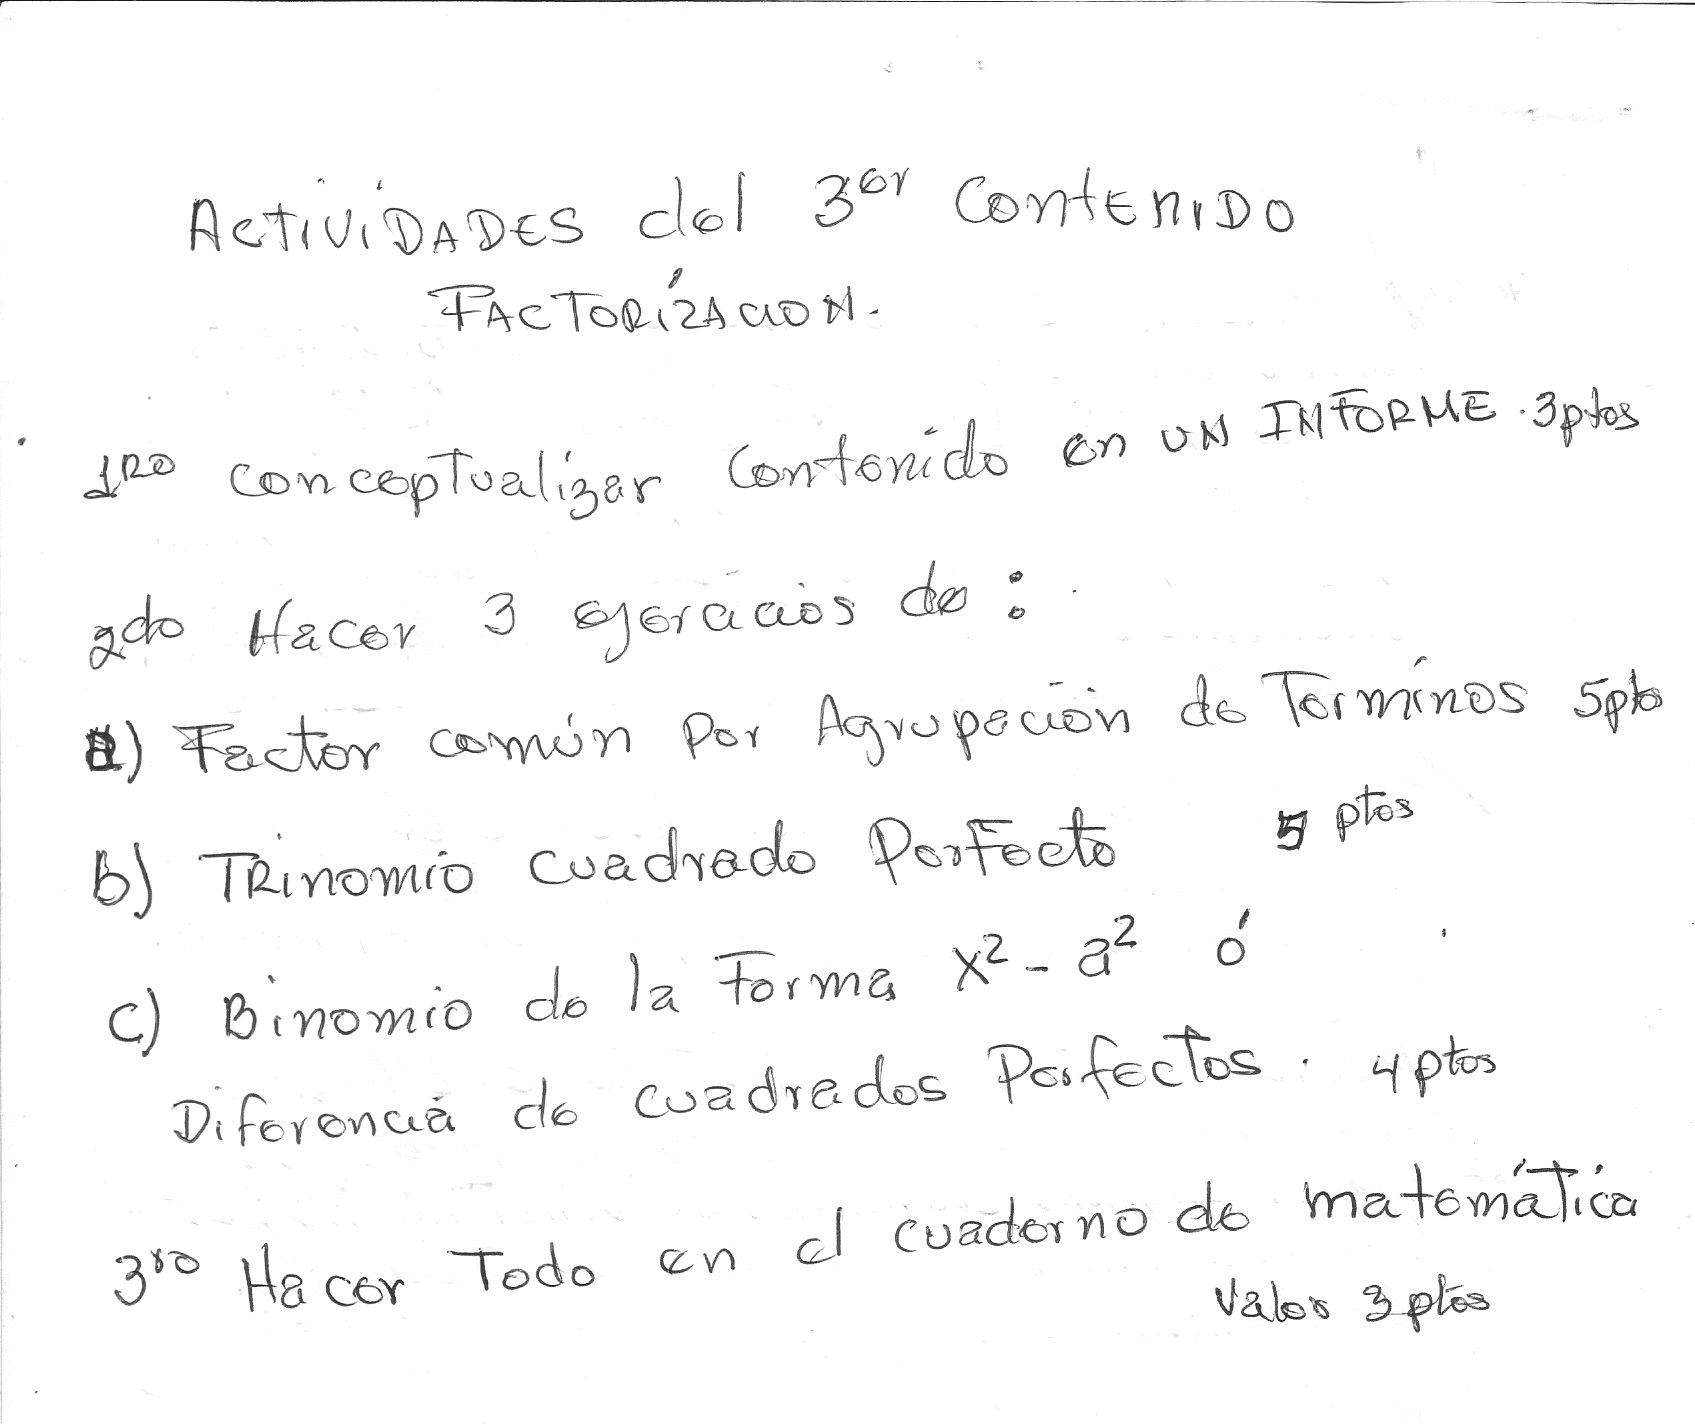 ACTIVIDADES del 3er CONTENIDO
FACTORIZACION.
1RO conceptualizar Contenido en UN INFORME. 3ptos
2do Hacer 3 ejercicios de:
a) Factor común Por Agrupación de Terminos 5pto
b) TRinomio cuadrado Perfecto 5 ptos
c) Binomio de la Forma x² - a² ó
Diferencia de cuadrados Perfectos. 4ptos
3ro Hacer Todo en el cuaderno de matemática
Valor 3 ptos